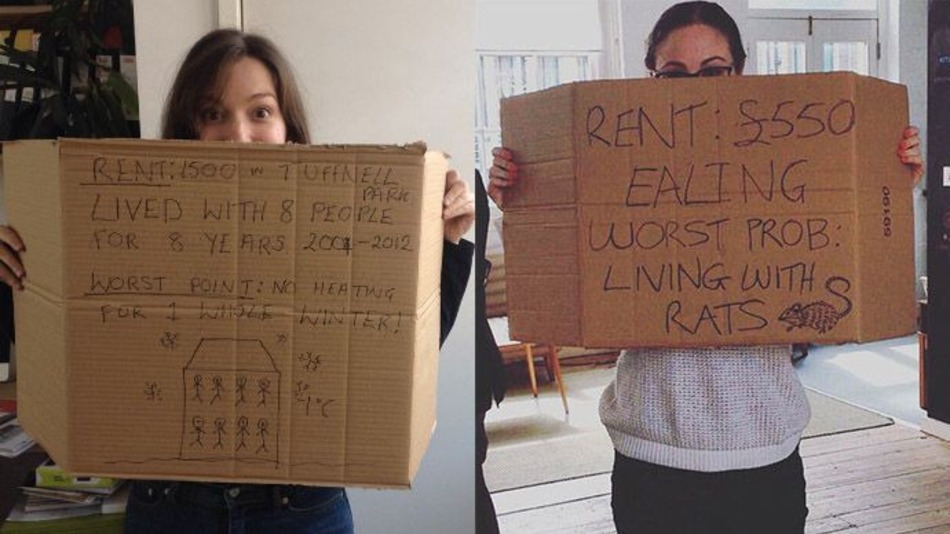 RENT: £500 in TUFFNELL
PARK
LIVED WITH 8 PEOPLE
FOR 8 YEARS 2004-2012
WORST POINT: NO HEATING
FOR 1 WHOLE WINTER!
-1°C
RENT: £550
EALING
WORST PROB:
LIVING WITH
RATS
59190